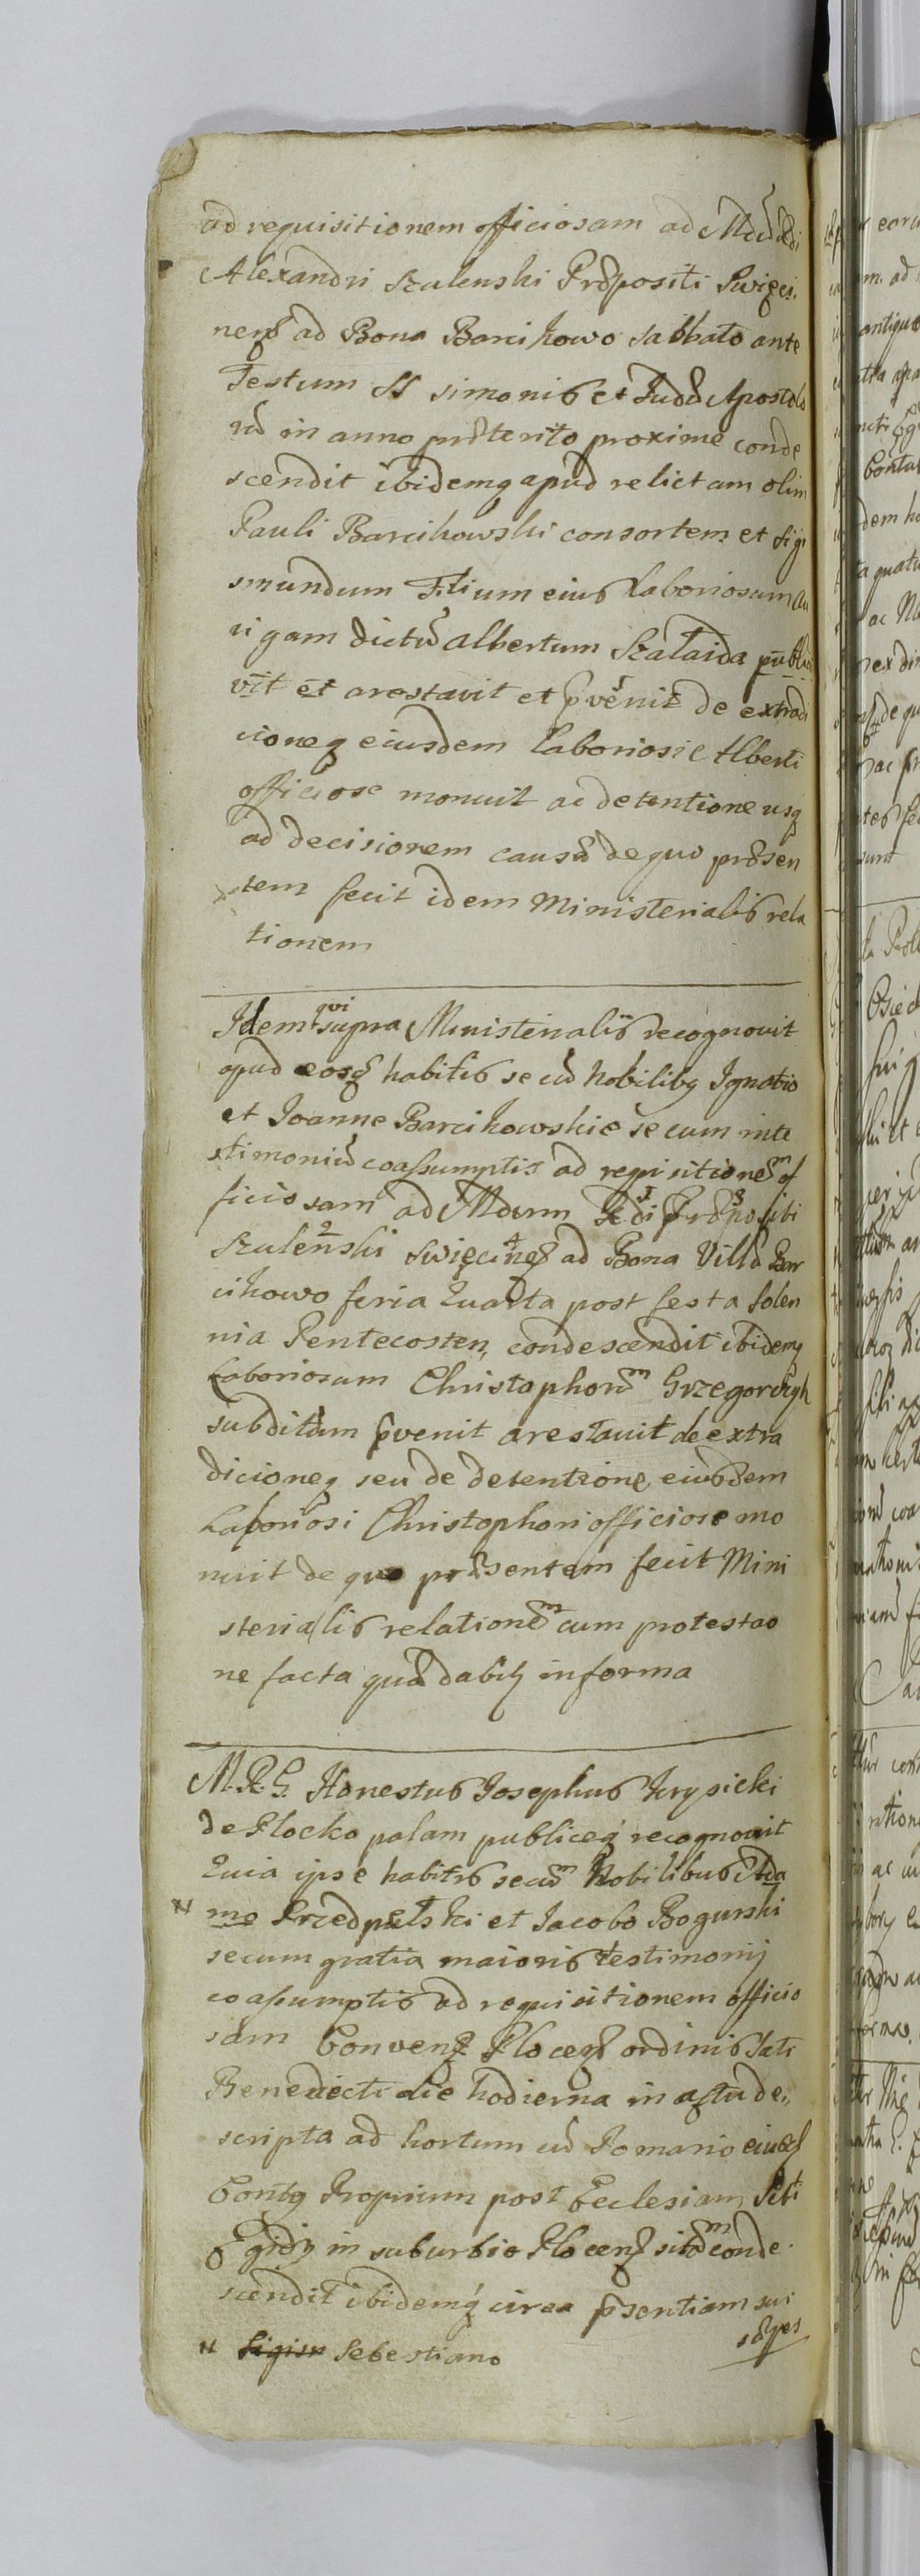 ad requisitionem officiosam ad Mdũ Rdi
Alexandri Szulenski Prępositi Swięci
neñ ad Bona Barcikowo sabbato ante
Festum SS simonis et Judę Apostolo
rũ in anno pręterito proxime conde
scendit ibidemq apud relictam olim
Pauli Barcikowski consortem et Sigi
smundum Filium eius laboriosum au
rigam dictũ Albertum Szalaida publica
vit et arestavit et pvenit de extradi
cioneq eiusdem laboriosi Alberti
officiose monuit ac detentione usq
ad decisionem causę de quo pręsen
tem fecit idem Ministerialis rela
tionem
Idem qui supra Ministerialis recognovit
apud eosq habitis secũ Nobilibq Ignatio
et Joanne Barcikowskie secum inte
stimoniũ coassumptis ad requisitionem of
ficiosam ad Mdum Rdi Prępositi
Szulenski Swięcineñ ad Bona Villę Bar
cikowo feria Quarta post festa solen
nia Pentecosten condescendit ibidemq
Laboriosum Christophorum Grzegorczyk
subditum pvenit arestauit de extra
dicioneq seu de detentione eiusdem
Laboriosi Christophori officiose mo
nuit de quo pręsentem fecit Mini
sterialis relationem cum protestao
ne facta quę dabit in forma
M. R. G. Honestus Josephus Krysicki
de Plocko palam publiceq recognovit
Quia ipse habitis secum Nobilibus Ada
" mo Przedpełski et Jacobo Bogurski
secum gratia maioris testimonij
coassumptis ad requisitionem officio
sam Convenq Ploceñ ordinis Sati
Benedicti die hodierna in actu de
scripta ad hortum cũ Pomario eiusd
Contq Proprium post Ecclesiam Sti
Egidij in suburbio Ploceñ situm conde
scendit ibidemq circa psentiam sui
" Sigism Sebestiano